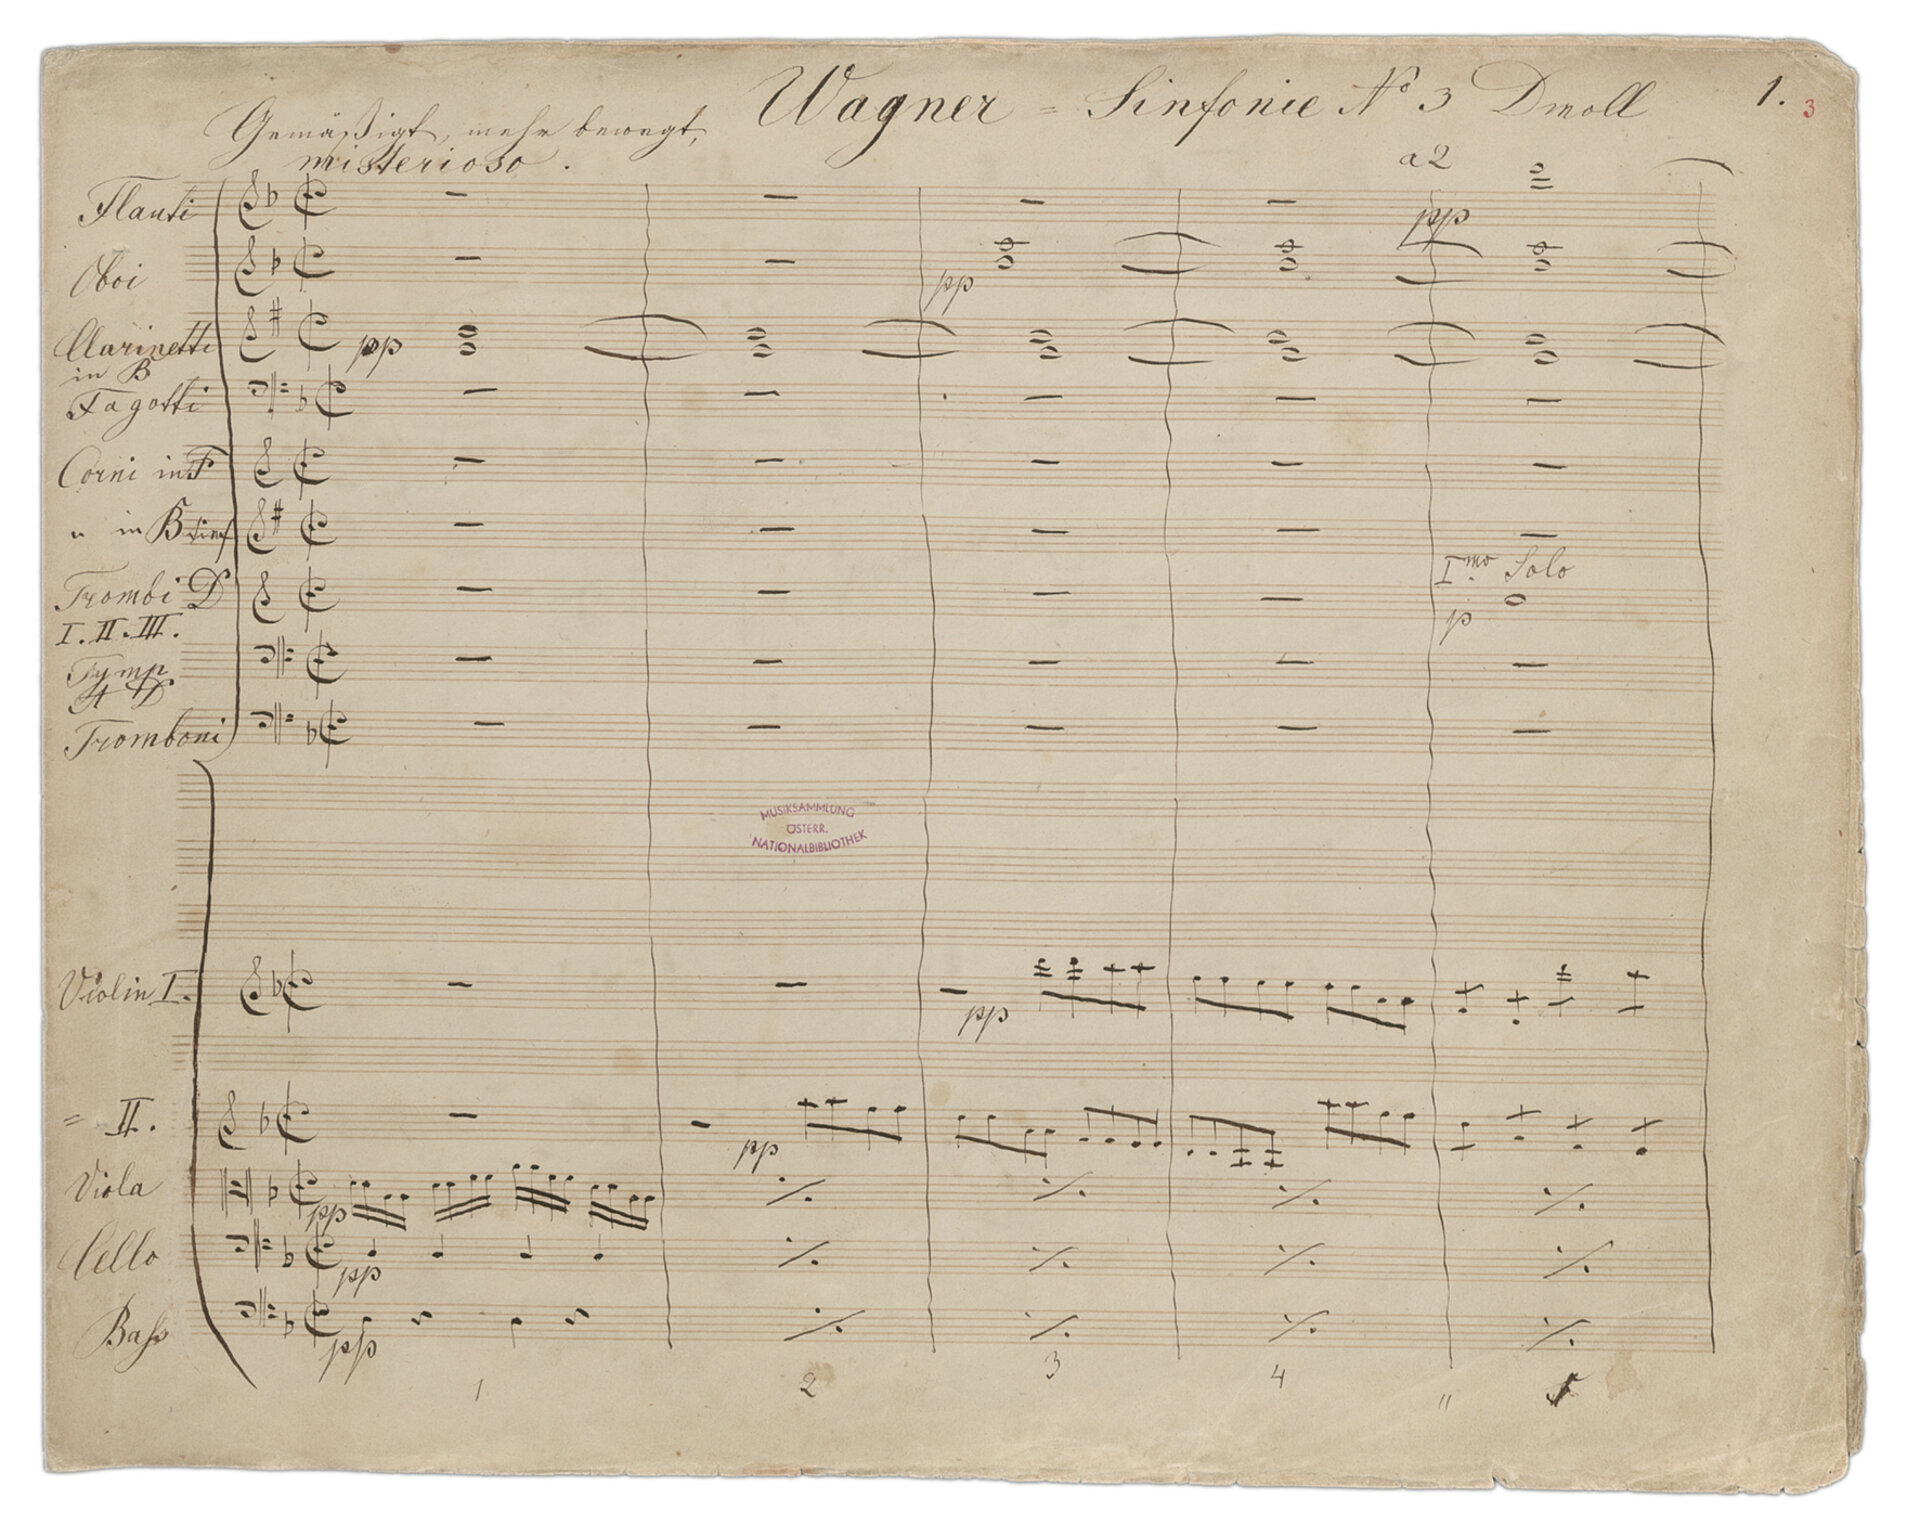 Wagner = Sinfonie No 3 Dmoll 1. 3
Gemäßigt, mehr bewegt,
misterioso.
a 2
Flauti
pp
Oboi
pp
Clarinetti
in B
pp
Fagotti
Corni in F
" in B tief
Imo Solo
Trombi D
I. II. III.
p
Tymp
A D
Tromboni
MUSIKSAMMLUNG
ÖSTERR.
NATIONALBIBLIOTHEK
Violin I.
pp
= II.
pp
Viola
pp
Cello
pp
Baß
pp
1 2 3 4 " 5